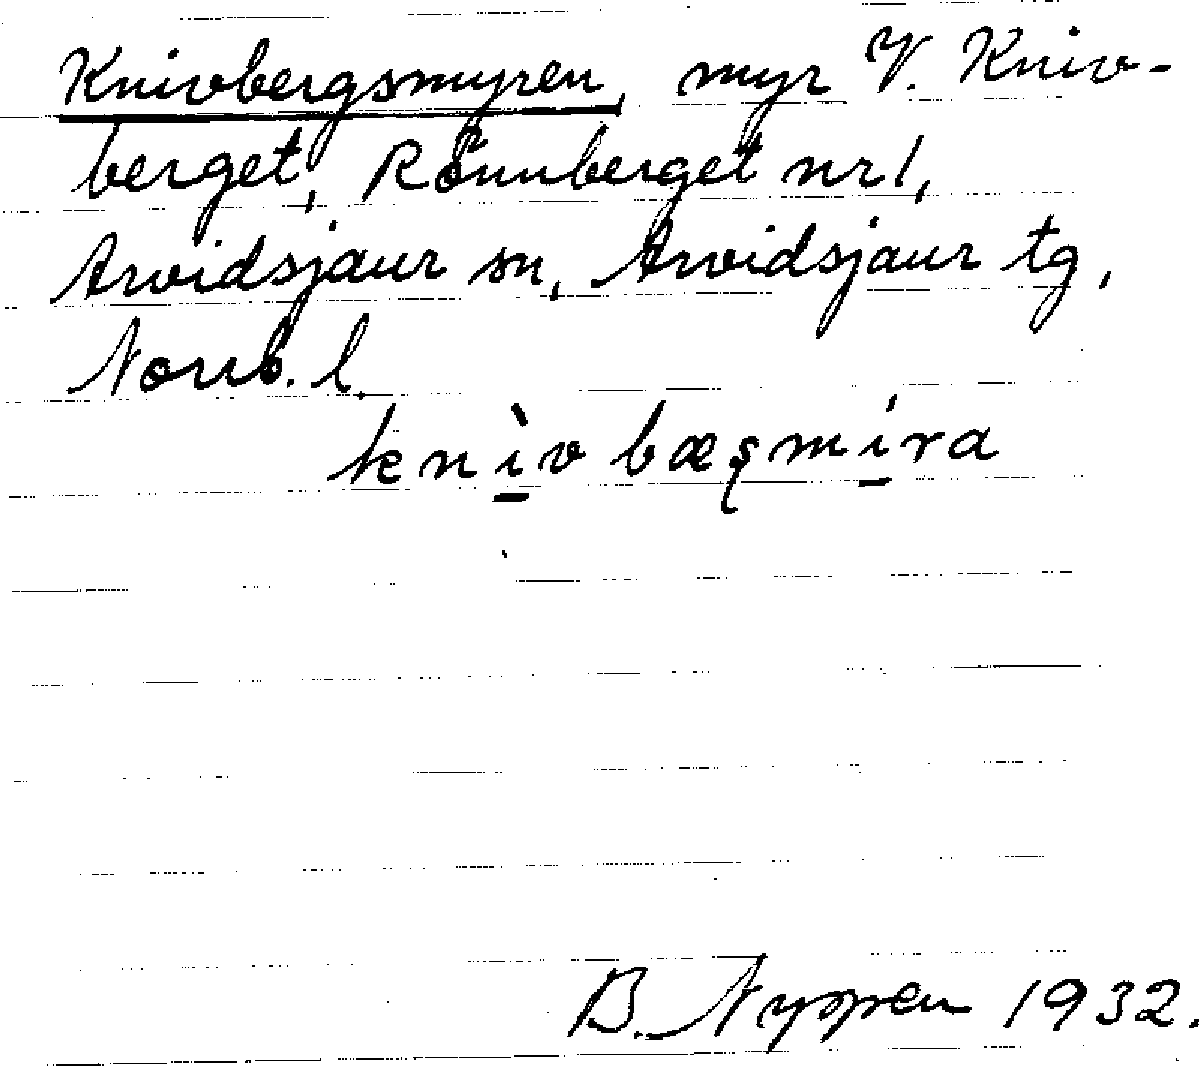 Knivbergsmyren, myr V. Kniv-
berget, Rönnberget nr 1,
Arvidsjaur sn, Arvidsjaur tg,
Norrb. l.
knìv bæșmíra
B. Nyppen 1932.